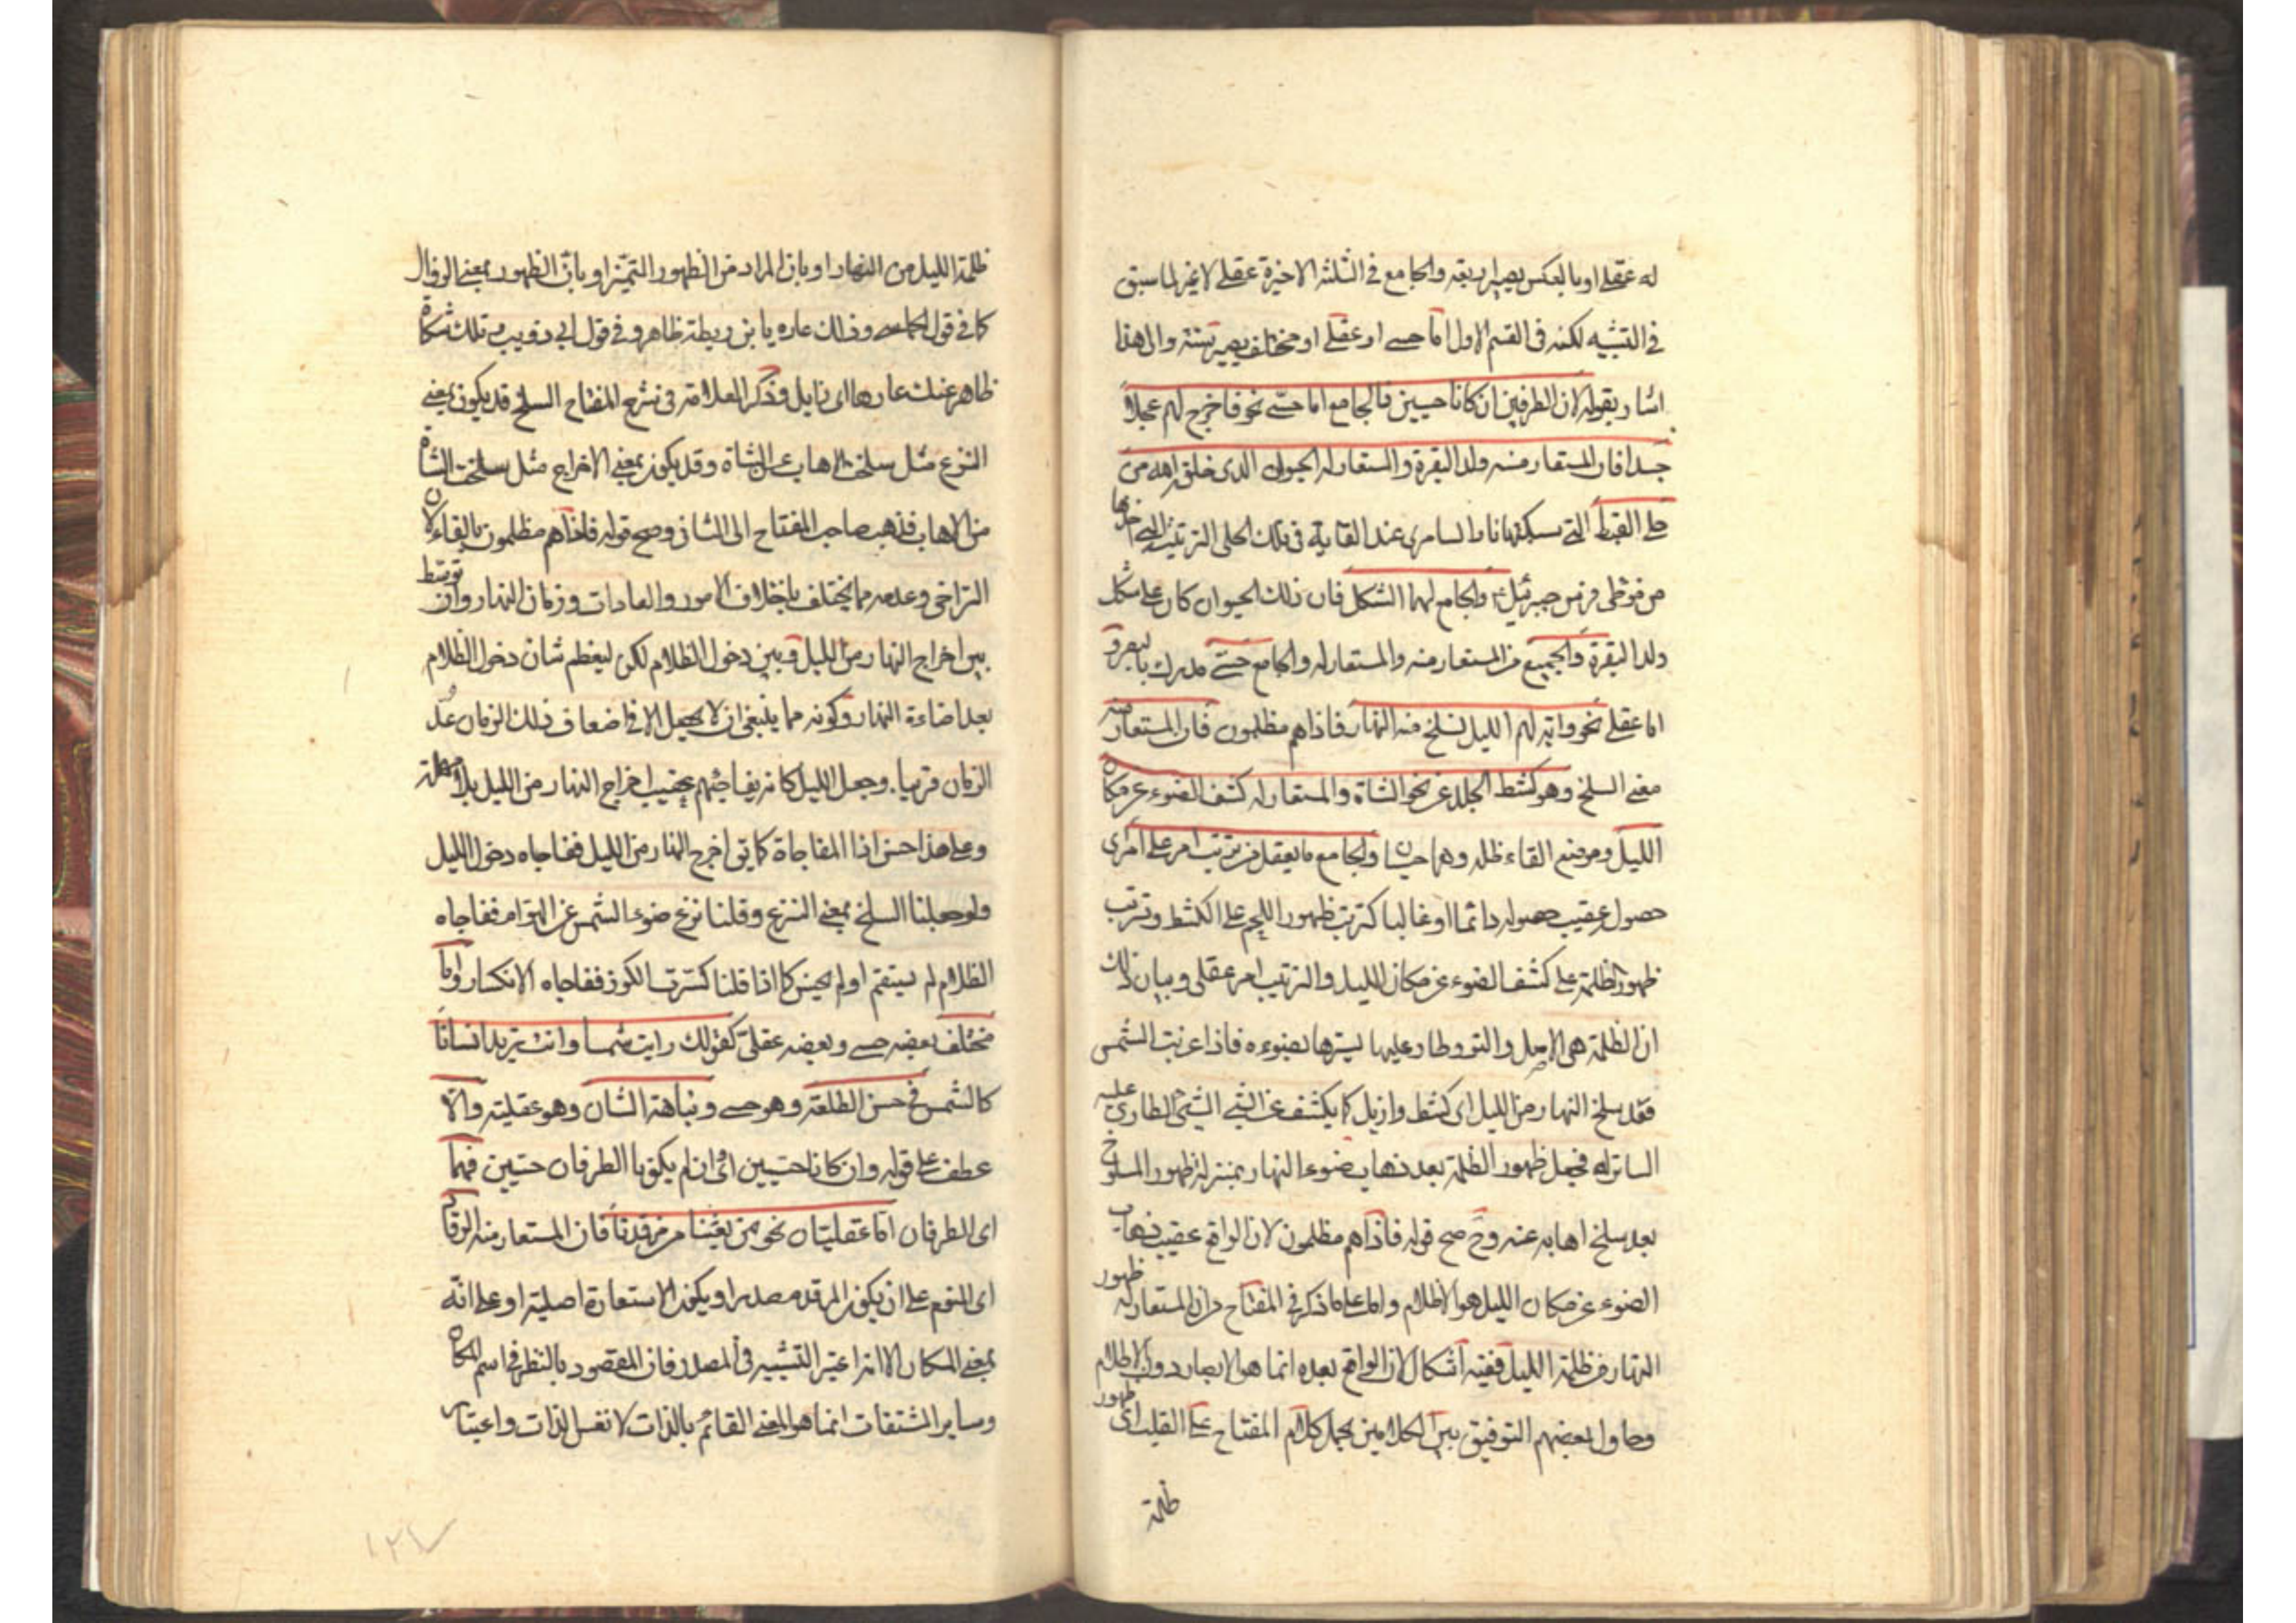 له عقلى او بالعكس يصير اربعة والجامع فى الثلثة الاخيرة عقلى لا غير لما سبق
فى التشبيه لكنه فى القسم الاول اما حسى او عقلى او مختلف يصير ستة والى هذا
اشار بقوله لان الطرفين ان كانا حسيين فالجامع اما حسّى نحو فاخرج لهم عجلاً
جسدا فان المستعار منه ولد البقرة والمستعار له الحيوان الذى خلق الله من
حلى القبط التى سبكتها نار السامرى عند القائه فى تلك الحلى التربة التى اخذها
من موطى فرس جبرئيل ع والجامع لهما الشكل فان ذلك الحيوان كان على شكل
ولد البقرة والجميع من المستعار منه والمستعار له والجامع حسّى مدرك بالبصر و
اما عقلى نحو واية لهم الليل نسلخ منه النهار فاذاهم مظلمون فان المستعار منه
معنى السلخ وهو كشط الجلد عن نحو الشاة والمستعار له كشف الضوء عن مكان
الليل وموضع القاء ظله وهما حسيان والجامع ما يعقل من ترتب امر على امر اى
حصوله عقيب حصوله دائما او غالبا كترتب ظهور اللحم على الكشط وترتب
ظهور الظلمة على كشف الضوء عن مكان الليل والترتب امر عقلى وبيان ذلك
ان الظلمة هى الاصل والنور طار عليها يسترها بضوءه فاذا غربت الشمس
فقد سلخ النهار من الليل اى كشط وازيل كما يكشف عن الشئ الشئ الطارى عليه
الساتر له فجعل ظهور الظلمة بعد ذهاب ضوء النهار بمنزلة ظهور المسلوخ
بعد سلخ اهابه عنه وح صح قوله فاذاهم مظلمون لان الواقع عقيب ذهاب
الضوء عن مكان الليل هو الاظلام واما على ما ذكر فى المفتاح من ان المستعار له ظهور
النهار من ظلمة الليل ففيه اشكال لان الواقع بعده انما هو الابصار دون الاظلام
وحاول بعضهم التوفيق بين الكلامين بحمل كلام المفتاح على القلب اى ظهور
ظلمة
ظلمة الليل من النهار او بان المراد من الظهور التميز او بانّ الظهور بمعنى الزوال
كما فى قول الحماسى وذلك عار يا بن ريطة ظاهر وفى قول ابى ذويب وتلك شكاة
ظاهر عنك عارها اى زايل وذكر العلامة فى شرح المفتاح السلخ قد يكون بمعنى
النزع مثل سلخت الاهاب عن الشاة وقد يكون بمعنى الاخراج مثل سلخت الشاة
من الاهاب فذهب صاحب المفتاح الى الثانى وصح قوله فاذاهم مظلمون بالفاء لان
التراخى وعدمه مما يختلف باختلاف الامور والعادات وزمان النهار وان توسط
بين اخراج النهار من الليل وبين دخول الظلام لكن ليعظم شان دخول الظلام
بعد اضاءة النهار وكونه مما ينبغى ان لا يحصل الا فى اضعاف ذلك الزمان عُدّ
الزمان قريبا وجعل الليل كانه يفاجئهم عقيب اخراج النهار من الليل بلا مهلة
وعلى هذا حسن اذا المفاجاة كما يق اخرج النهار من الليل ففاجاه دخول الليل
ولو جعلنا السلخ بمعنى النزع وقلنا نزع ضوء الشمس عن الهواء ففاجاه
الظلام لم يستقم او لم يحسن كما اذا قلنا كسرت الكوز ففاجاه الانكسار واما
مختلف بعضه حسى وبعضه عقلىّ كقولك رايت شمسا وانت تريد انسانا
كالشمس فى حسن الطلعة وهو حسى ونباهة الشان وهو عقلية والّا
عطف على قوله وان كانا حسيين اى وان لم يكونا الطرفان حسيين فهما
اى الطرفان امّا عقليتان نحو من بعثنا من مرقدنا فان المستعار منه الرقاد
اى النوم على ان يكون المرقد مصدرا ويكون الاستعارة اصلية او على انّه
بمعنى المكان الا انه اعتبر التشبيه فى المصدر فان المقصود بالنظر فى اسم المكان
وساير المشتقات انما هو المعنى القائم بالذات لا نفس الذات واعتبار